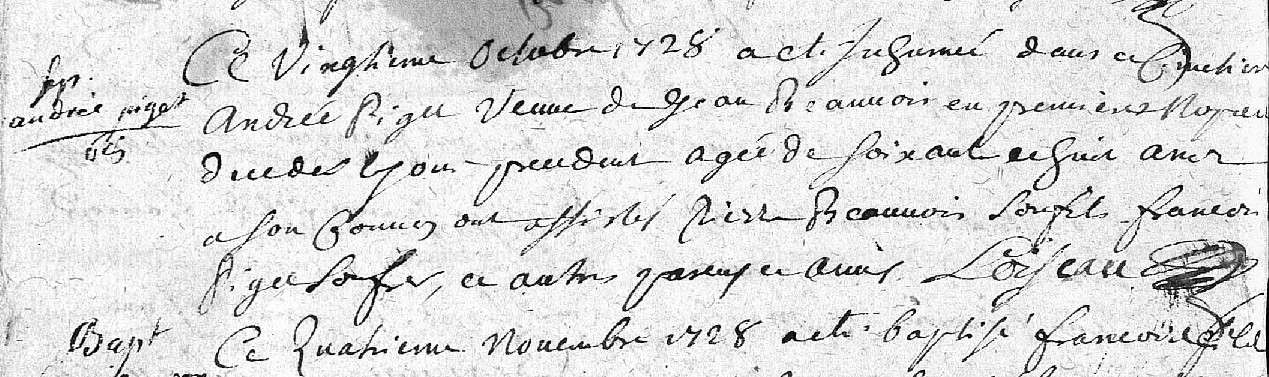 sep.
andrée piget
Ce Vingtieme Octobre 1728 a eté Inhumeé dans ce Cimetiere
Andrée Piget Veuve de Jean Beauvois en premieres Nopces
decedeé le jour precedent ageé de soixante et huit ans
a son Convoy ont assistés Pierre Beauvois son fils francois
Piget son frere, et autres parens et amis Loiseau
Bapt Ce Quatrieme Novembre 1728 a eté baptisé francoise fille